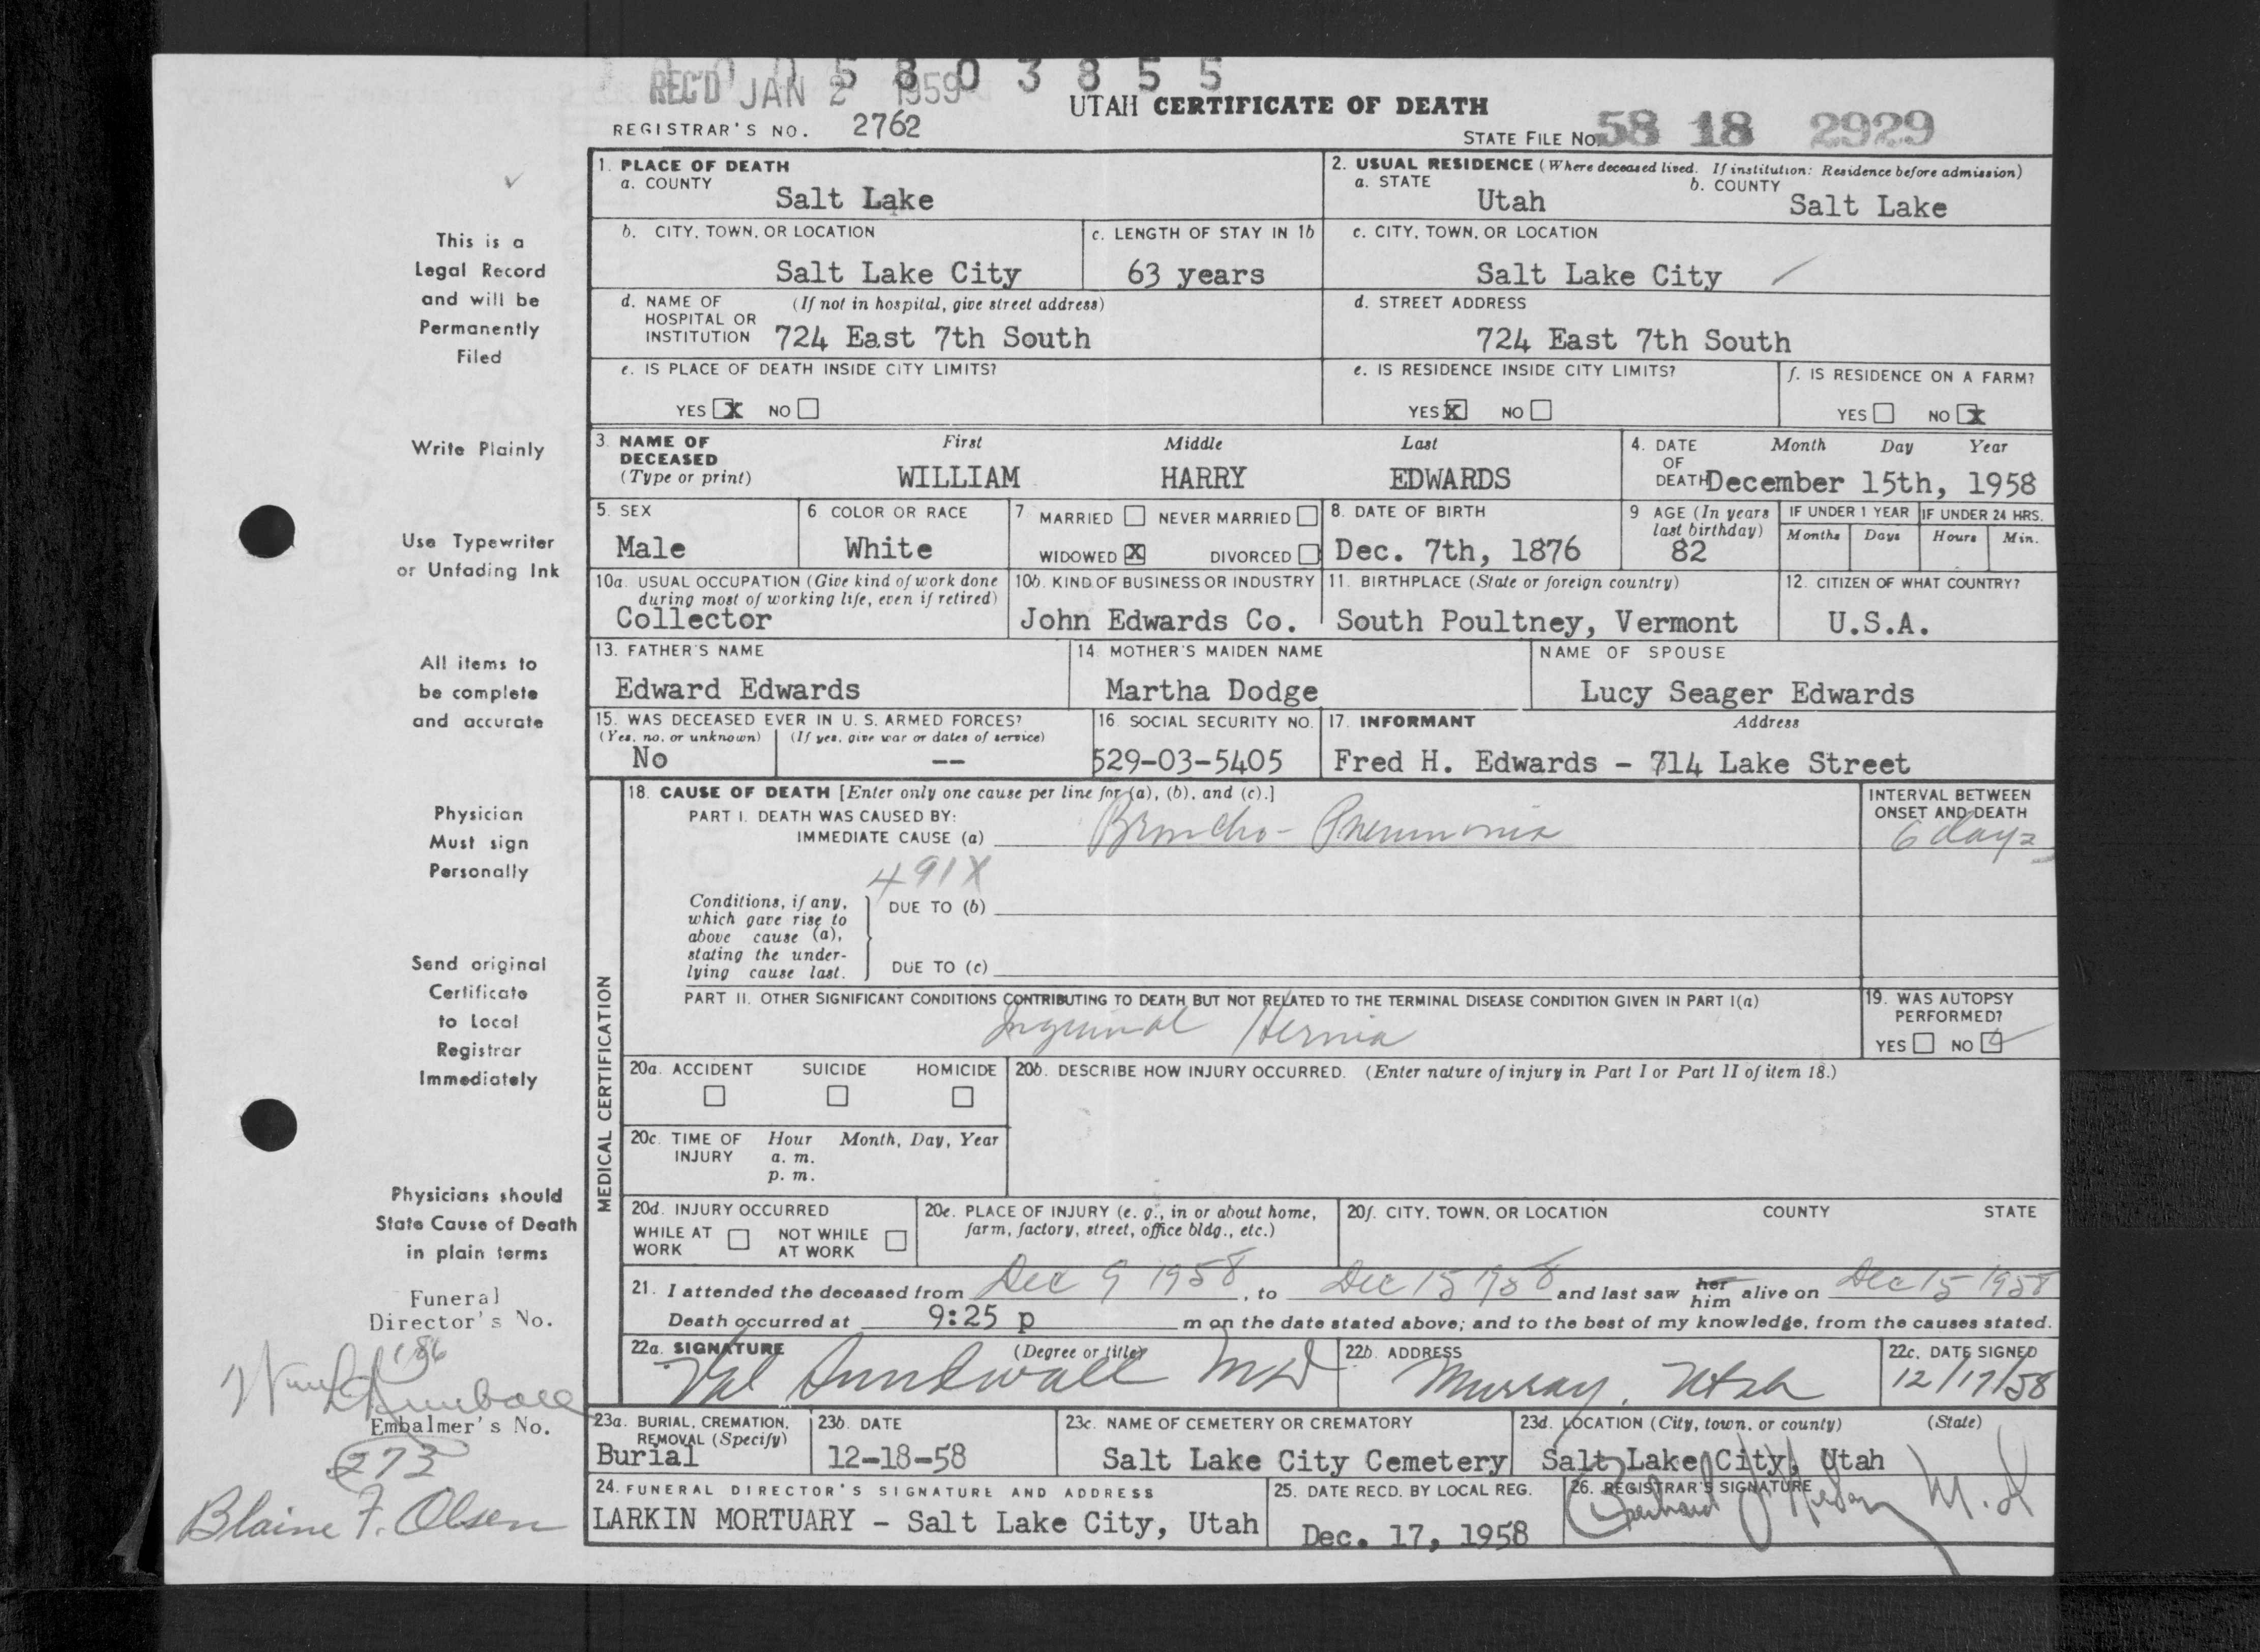 5 8 0 3 8 5 5
REC'D JAN 2 1959
UTAH CERTIFICATE OF DEATH
REGISTRAR'S NO. 2762
STATE FILE No. 58 18 2929
This is a
Legal Record
and will be
Permanently
Filed
Write Plainly
Use Typewriter
or Unfading Ink
All items to
be complete
and accurate
Physician
Must sign
Personally
Send original
Certificate
to Local
Registrar
Immediately
Physicians should
State Cause of Death
in plain terms
Funeral
Director's No.
186
Embalmer's No.
273
Blaine F. Olsen
1. PLACE OF DEATH
a. COUNTY
Salt Lake
2. USUAL RESIDENCE (Where deceased lived. If institution: Residence before admission)
a. STATE
Utah
b. COUNTY
Salt Lake
b. CITY, TOWN, OR LOCATION
Salt Lake City
c. LENGTH OF STAY IN 1b
63 years
c. CITY, TOWN, OR LOCATION
Salt Lake City
d. NAME OF (If not in hospital, give street address)
HOSPITAL OR
INSTITUTION 724 East 7th South
d. STREET ADDRESS
724 East 7th South
e. IS PLACE OF DEATH INSIDE CITY LIMITS?
YES X NO
e. IS RESIDENCE INSIDE CITY LIMITS?
YES X NO
f. IS RESIDENCE ON A FARM?
YES NO X
3. NAME OF DECEASED (Type or print)
First Middle Last
WILLIAM HARRY EDWARDS
4. DATE OF DEATH
Month Day Year
December 15th, 1958
5. SEX
Male
6. COLOR OR RACE
White
7. MARRIED NEVER MARRIED
WIDOWED X DIVORCED
8. DATE OF BIRTH
Dec. 7th, 1876
9. AGE (In years last birthday)
82
IF UNDER 1 YEAR
Months Days
IF UNDER 24 HRS.
Hours Min.
10a. USUAL OCCUPATION (Give kind of work done
during most of working life, even if retired)
Collector
10b. KIND OF BUSINESS OR INDUSTRY
John Edwards Co.
11. BIRTHPLACE (State or foreign country)
South Poultney, Vermont
12. CITIZEN OF WHAT COUNTRY?
U.S.A.
13. FATHER'S NAME
Edward Edwards
14. MOTHER'S MAIDEN NAME
Martha Dodge
NAME OF SPOUSE
Lucy Seager Edwards
15. WAS DECEASED EVER IN U. S. ARMED FORCES?
(Yes, no, or unknown) (If yes, give war or dates of service)
No --
16. SOCIAL SECURITY NO.
529-03-5405
17. INFORMANT Address
Fred H. Edwards - 714 Lake Street
MEDICAL CERTIFICATION
18. CAUSE OF DEATH [Enter only one cause per line for (a), (b), and (c).]
PART I. DEATH WAS CAUSED BY:
IMMEDIATE CAUSE (a) Broncho-Pneumonia
INTERVAL BETWEEN
ONSET AND DEATH
6 days
491X
Conditions, if any,
which gave rise to
above cause (a),
stating the under-
lying cause last.
DUE TO (b)
DUE TO (c)
PART II. OTHER SIGNIFICANT CONDITIONS CONTRIBUTING TO DEATH BUT NOT RELATED TO THE TERMINAL DISEASE CONDITION GIVEN IN PART I(a)
Inguinal Hernia
19. WAS AUTOPSY
PERFORMED?
YES NO
20a. ACCIDENT SUICIDE HOMICIDE
20b. DESCRIBE HOW INJURY OCCURRED. (Enter nature of injury in Part I or Part II of item 18.)
20c. TIME OF INJURY
Hour Month, Day, Year
a. m.
p. m.
20d. INJURY OCCURRED
WHILE AT WORK NOT WHILE AT WORK
20e. PLACE OF INJURY (e. g., in or about home,
farm, factory, street, office bldg., etc.)
20f. CITY, TOWN, OR LOCATION COUNTY STATE
21. I attended the deceased from Dec 9 1958, to Dec 15 1958 and last saw her him alive on Dec 15 1958
Death occurred at 9:25 p m on the date stated above; and to the best of my knowledge, from the causes stated.
22a. SIGNATURE (Degree or title)
Val Sundwall MD
22b. ADDRESS
Murray, Utah
22c. DATE SIGNED
12/17/58
23a. BURIAL, CREMATION,
REMOVAL (Specify)
Burial
23b. DATE
12-18-58
23c. NAME OF CEMETERY OR CREMATORY
Salt Lake City Cemetery
23d. LOCATION (City, town, or county) (State)
Salt Lake City, Utah
24. FUNERAL DIRECTOR'S SIGNATURE AND ADDRESS
LARKIN MORTUARY - Salt Lake City, Utah
25. DATE RECD. BY LOCAL REG.
Dec. 17, 1958
26. REGISTRAR'S SIGNATURE